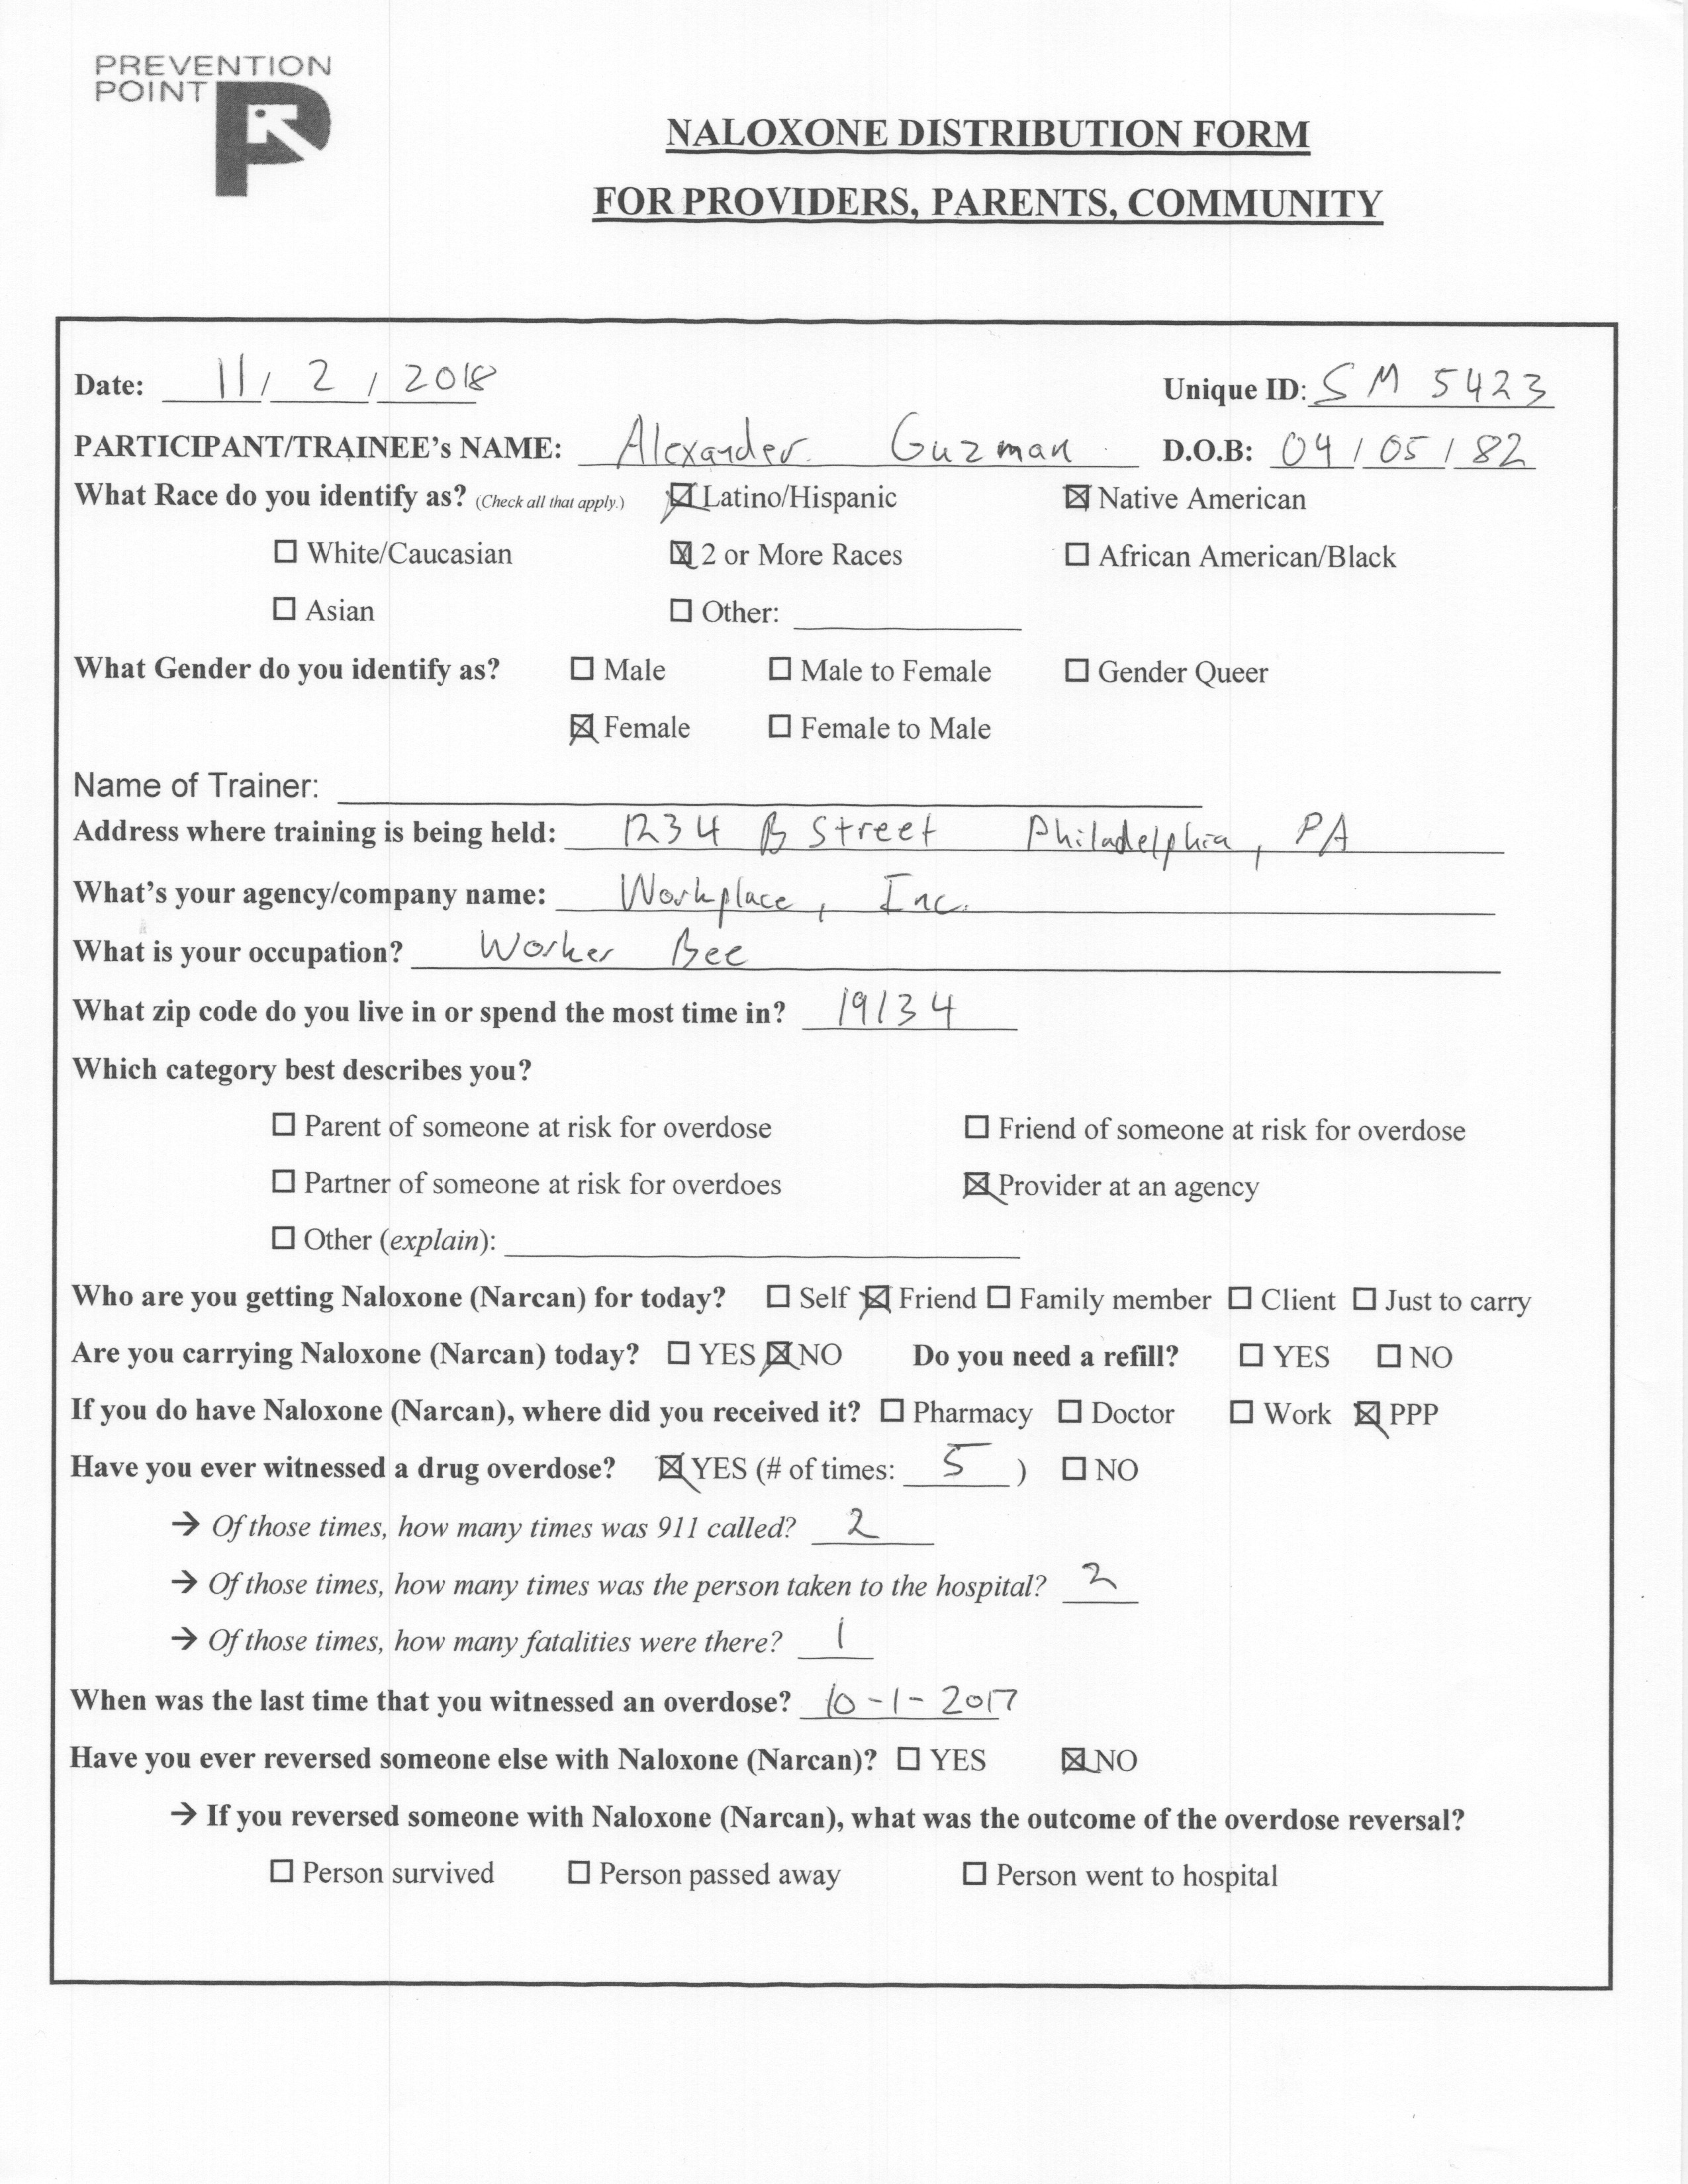 PREVENTION
POINT
NALOXONE DISTRIBUTION FORM
FOR PROVIDERS, PARENTS, COMMUNITY
Date: 11 / 2 / 2018 Unique ID: SM 5423
PARTICIPANT/TRAINEE's NAME: Alexander Guzman D.O.B: 04 / 05 / 82
What Race do you identify as? (Check all that apply.) ☒ Latino/Hispanic ☒ Native American
☐ White/Caucasian ☒ 2 or More Races ☐ African American/Black
☐ Asian ☐ Other: ______
What Gender do you identify as? ☐ Male ☐ Male to Female ☐ Gender Queer
☒ Female ☐ Female to Male
Name of Trainer: ______
Address where training is being held: 1234 B Street Philadelphia, PA
What's your agency/company name: Workplace, Inc.
What is your occupation? Worker Bee
What zip code do you live in or spend the most time in? 19134
Which category best describes you?
☐ Parent of someone at risk for overdose ☐ Friend of someone at risk for overdose
☐ Partner of someone at risk for overdoes ☒ Provider at an agency
☐ Other (explain): ______
Who are you getting Naloxone (Narcan) for today? ☐ Self ☒ Friend ☐ Family member ☐ Client ☐ Just to carry
Are you carrying Naloxone (Narcan) today? ☐ YES ☒ NO Do you need a refill? ☐ YES ☐ NO
If you do have Naloxone (Narcan), where did you received it? ☐ Pharmacy ☐ Doctor ☐ Work ☒ PPP
Have you ever witnessed a drug overdose? ☒ YES (# of times: 5 ) ☐ NO
→ Of those times, how many times was 911 called? 2
→ Of those times, how many times was the person taken to the hospital? 2
→ Of those times, how many fatalities were there? 1
When was the last time that you witnessed an overdose? 10-1-2017
Have you ever reversed someone else with Naloxone (Narcan)? ☐ YES ☒ NO
→ If you reversed someone with Naloxone (Narcan), what was the outcome of the overdose reversal?
☐ Person survived ☐ Person passed away ☐ Person went to hospital